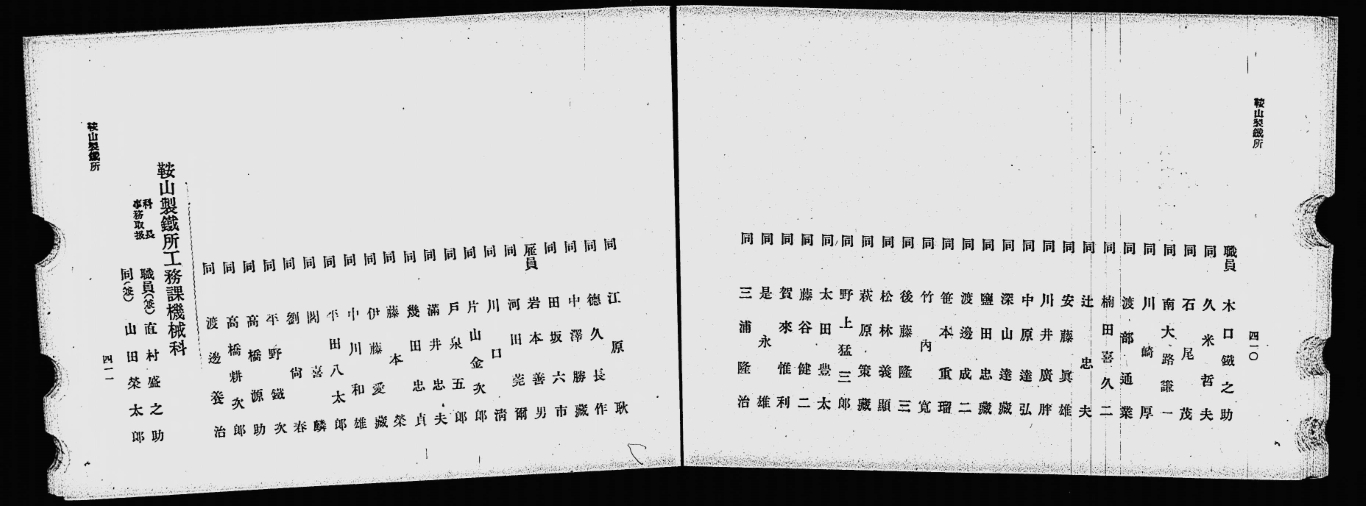 鞍山製鐵所
四一〇
職員 木口鐵之助
同 久米哲夫
同 石尾茂
同 南大路謙一
同 川崎厚
同 渡部通業
同 楠田喜久二
同 辻忠夫
同 安藤眞雄
同 川井廣胖
同 中原達弘
同 深山達藏
同 鹽田忠藏
同 渡邊成二
同 笹本重瑠
同 竹內寬
同 後藤隆三
同 松林義顯
同 萩原策藏
同 野上猛三郎
同 太田豊太
同 藤谷健二
同 賀來惟利
同 是永雄
同 三浦隆治
同 江原耿
同 德久長作
同 中澤勝藏
同 田坂六市
雇員 岩本善男
同 河田莞爾
同 川口清
同 片山金次郎
同 戶泉五郎
同 滿井忠夫
同 幾田忠貞
同 藤本榮
同 伊藤愛藏
同 中川和雄
同 平田八太郎
同 閔喜麟
同 劉尙春
同 平野鐵次
同 高橋源助
同 高橋耕次郎
同 渡邊養治
鞍山製鐵所工務課機械科
科長事務取扱 職員(參) 直村盛之助
同(參) 山田榮太郎
四一一
鞍山製鐵所